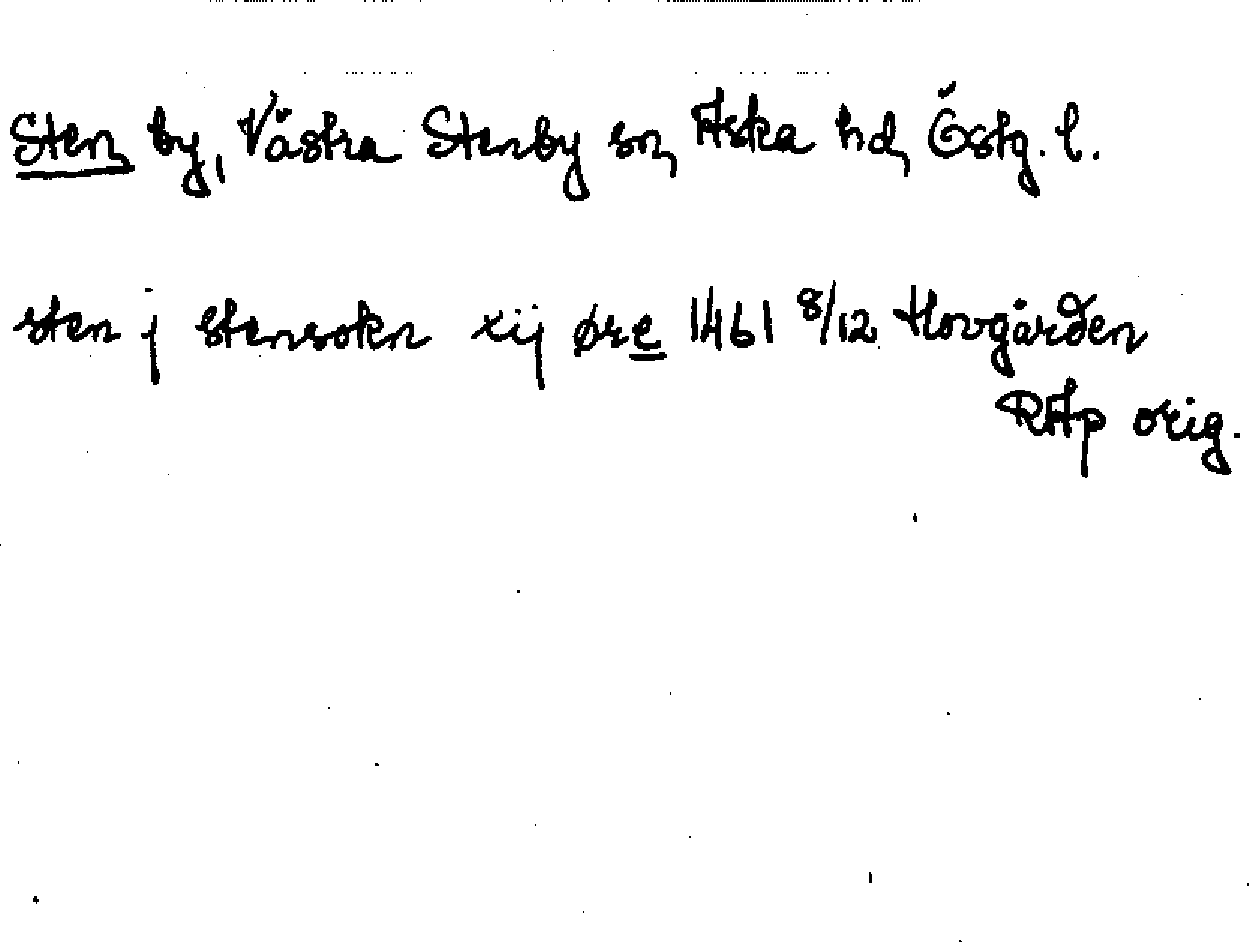 Sten, by, Västra Stenby sn, Aska hd, Östg. l.
sten j stensokn xij øre 1461 8/12 Hovgården
RAp orig.